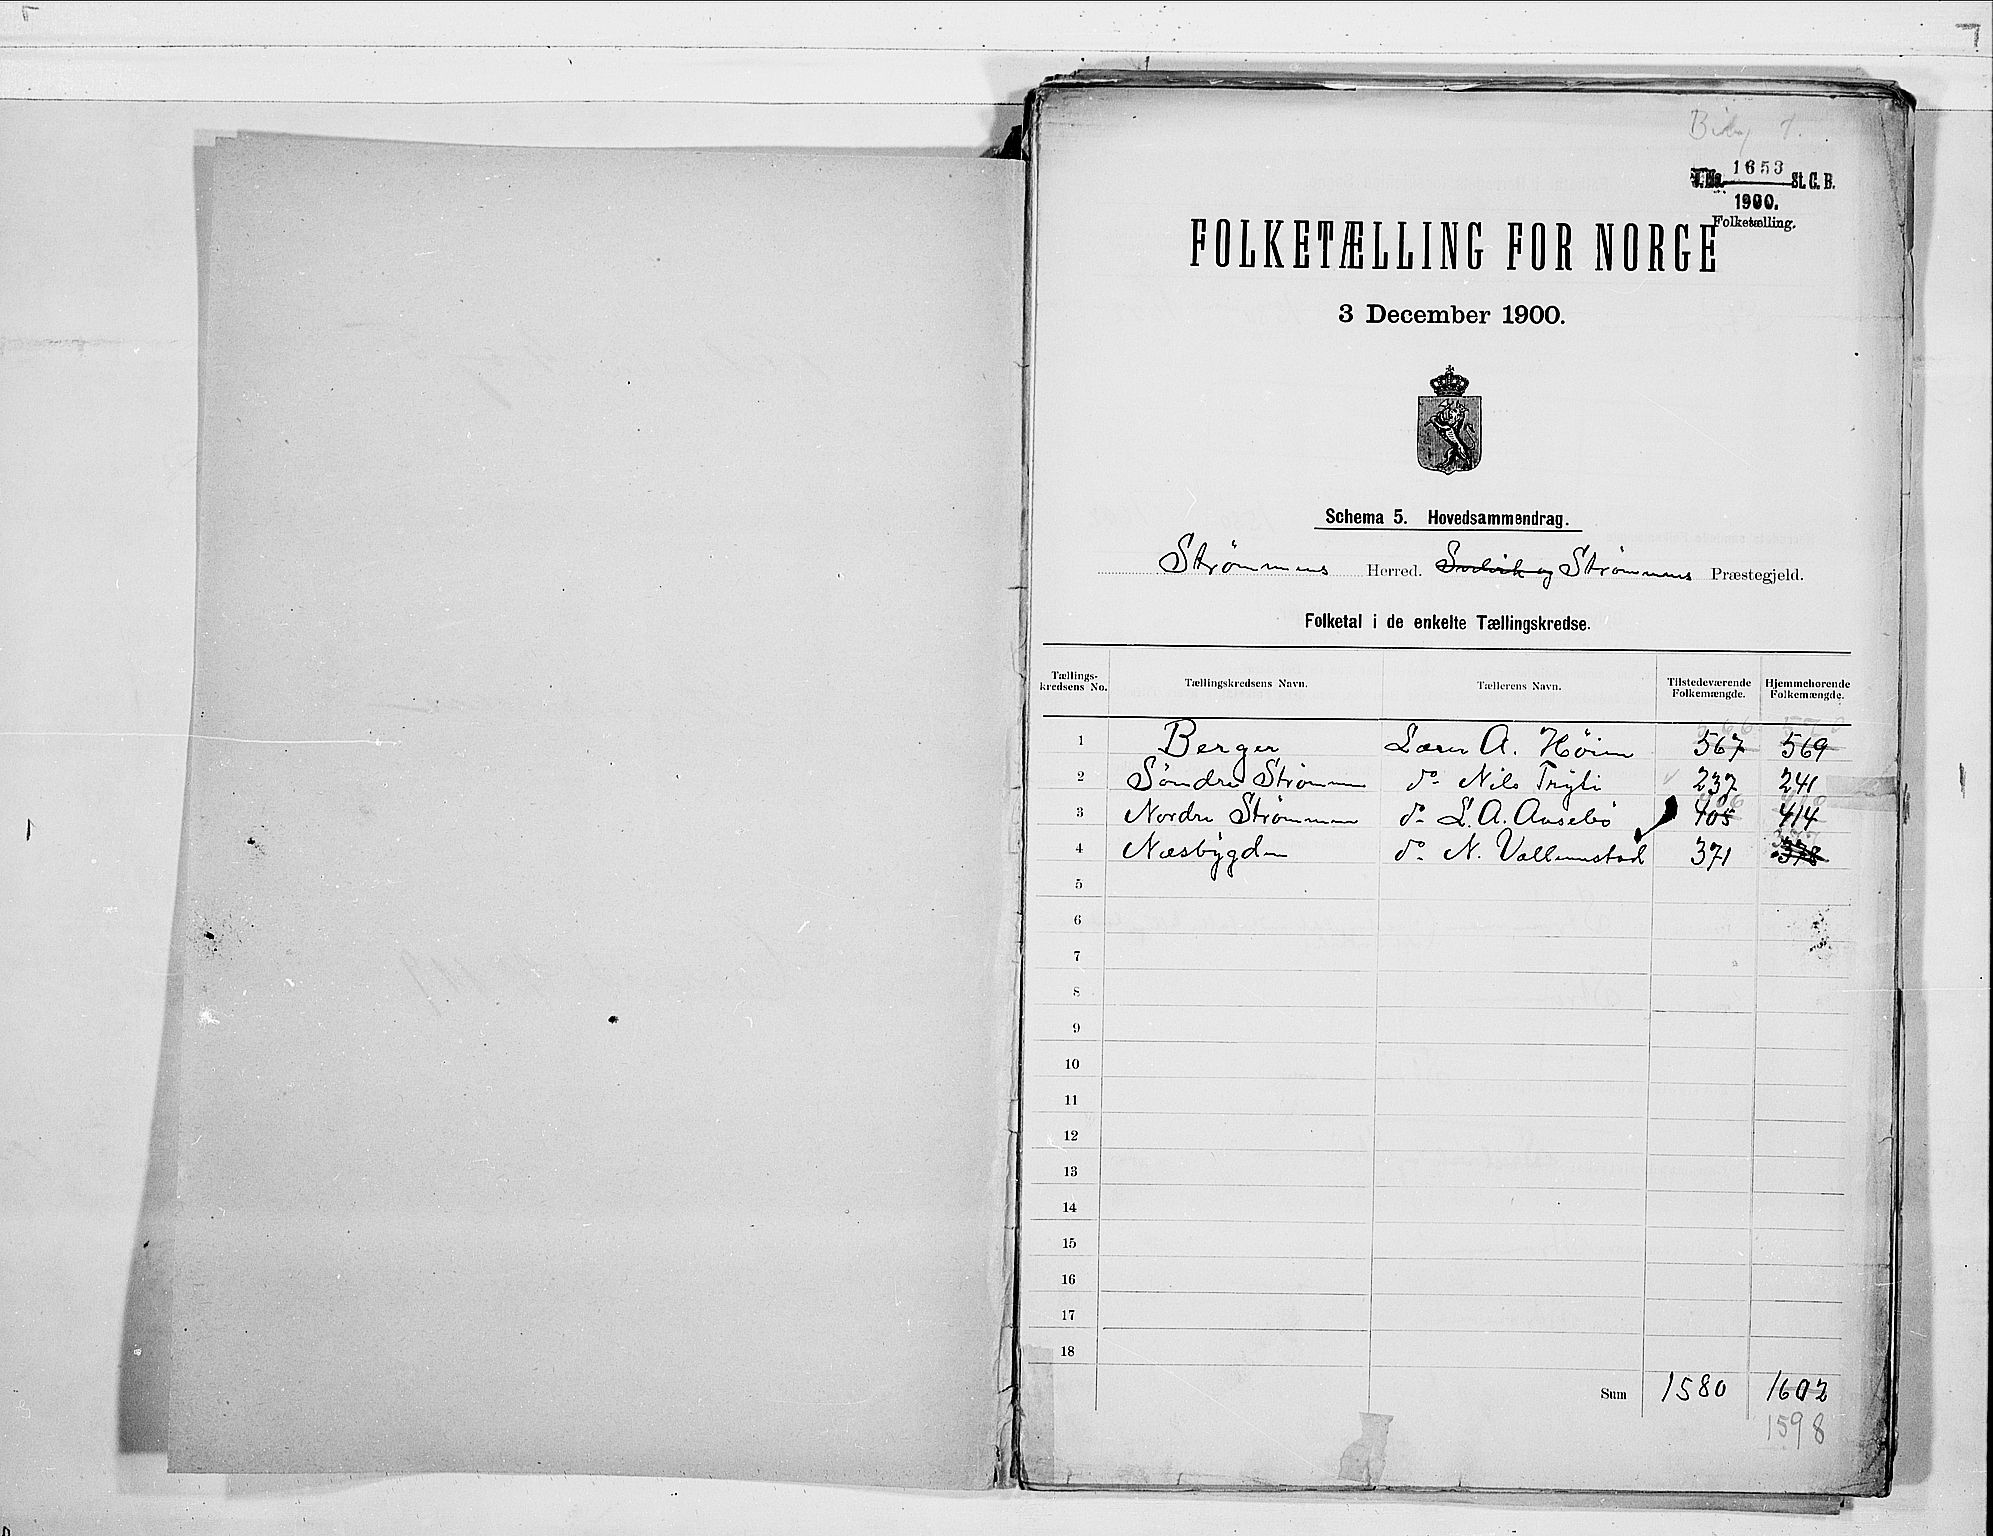 1653
St. C. B.
1900.
Folketælling.
FOLKETÆLLING FOR NORGE
3 December 1900.
Schema 5. Hovedsammendrag.
Strømmens Herred. Svelvik og Strømmens Præstegjeld.
Folketal i de enkelte Tællingskredse.
Tællings-kredsens No. Tællingskredsens Navn. Tællerens Navn. Tilstedeværende Folkemængde. Hjemmehørende Folkemængde.
1 Berger Lærer A. Høien 567 569
2 Søndre Strømmen do Nils Trygli 237 241
3 Nordre Strømmen do L. A. Aasebø 405 414
4 Næsbygden do N. 371 378
5
6
7
8
9
10
11
12
13
14
15
16
17
18
Sum 1580 1602
1598